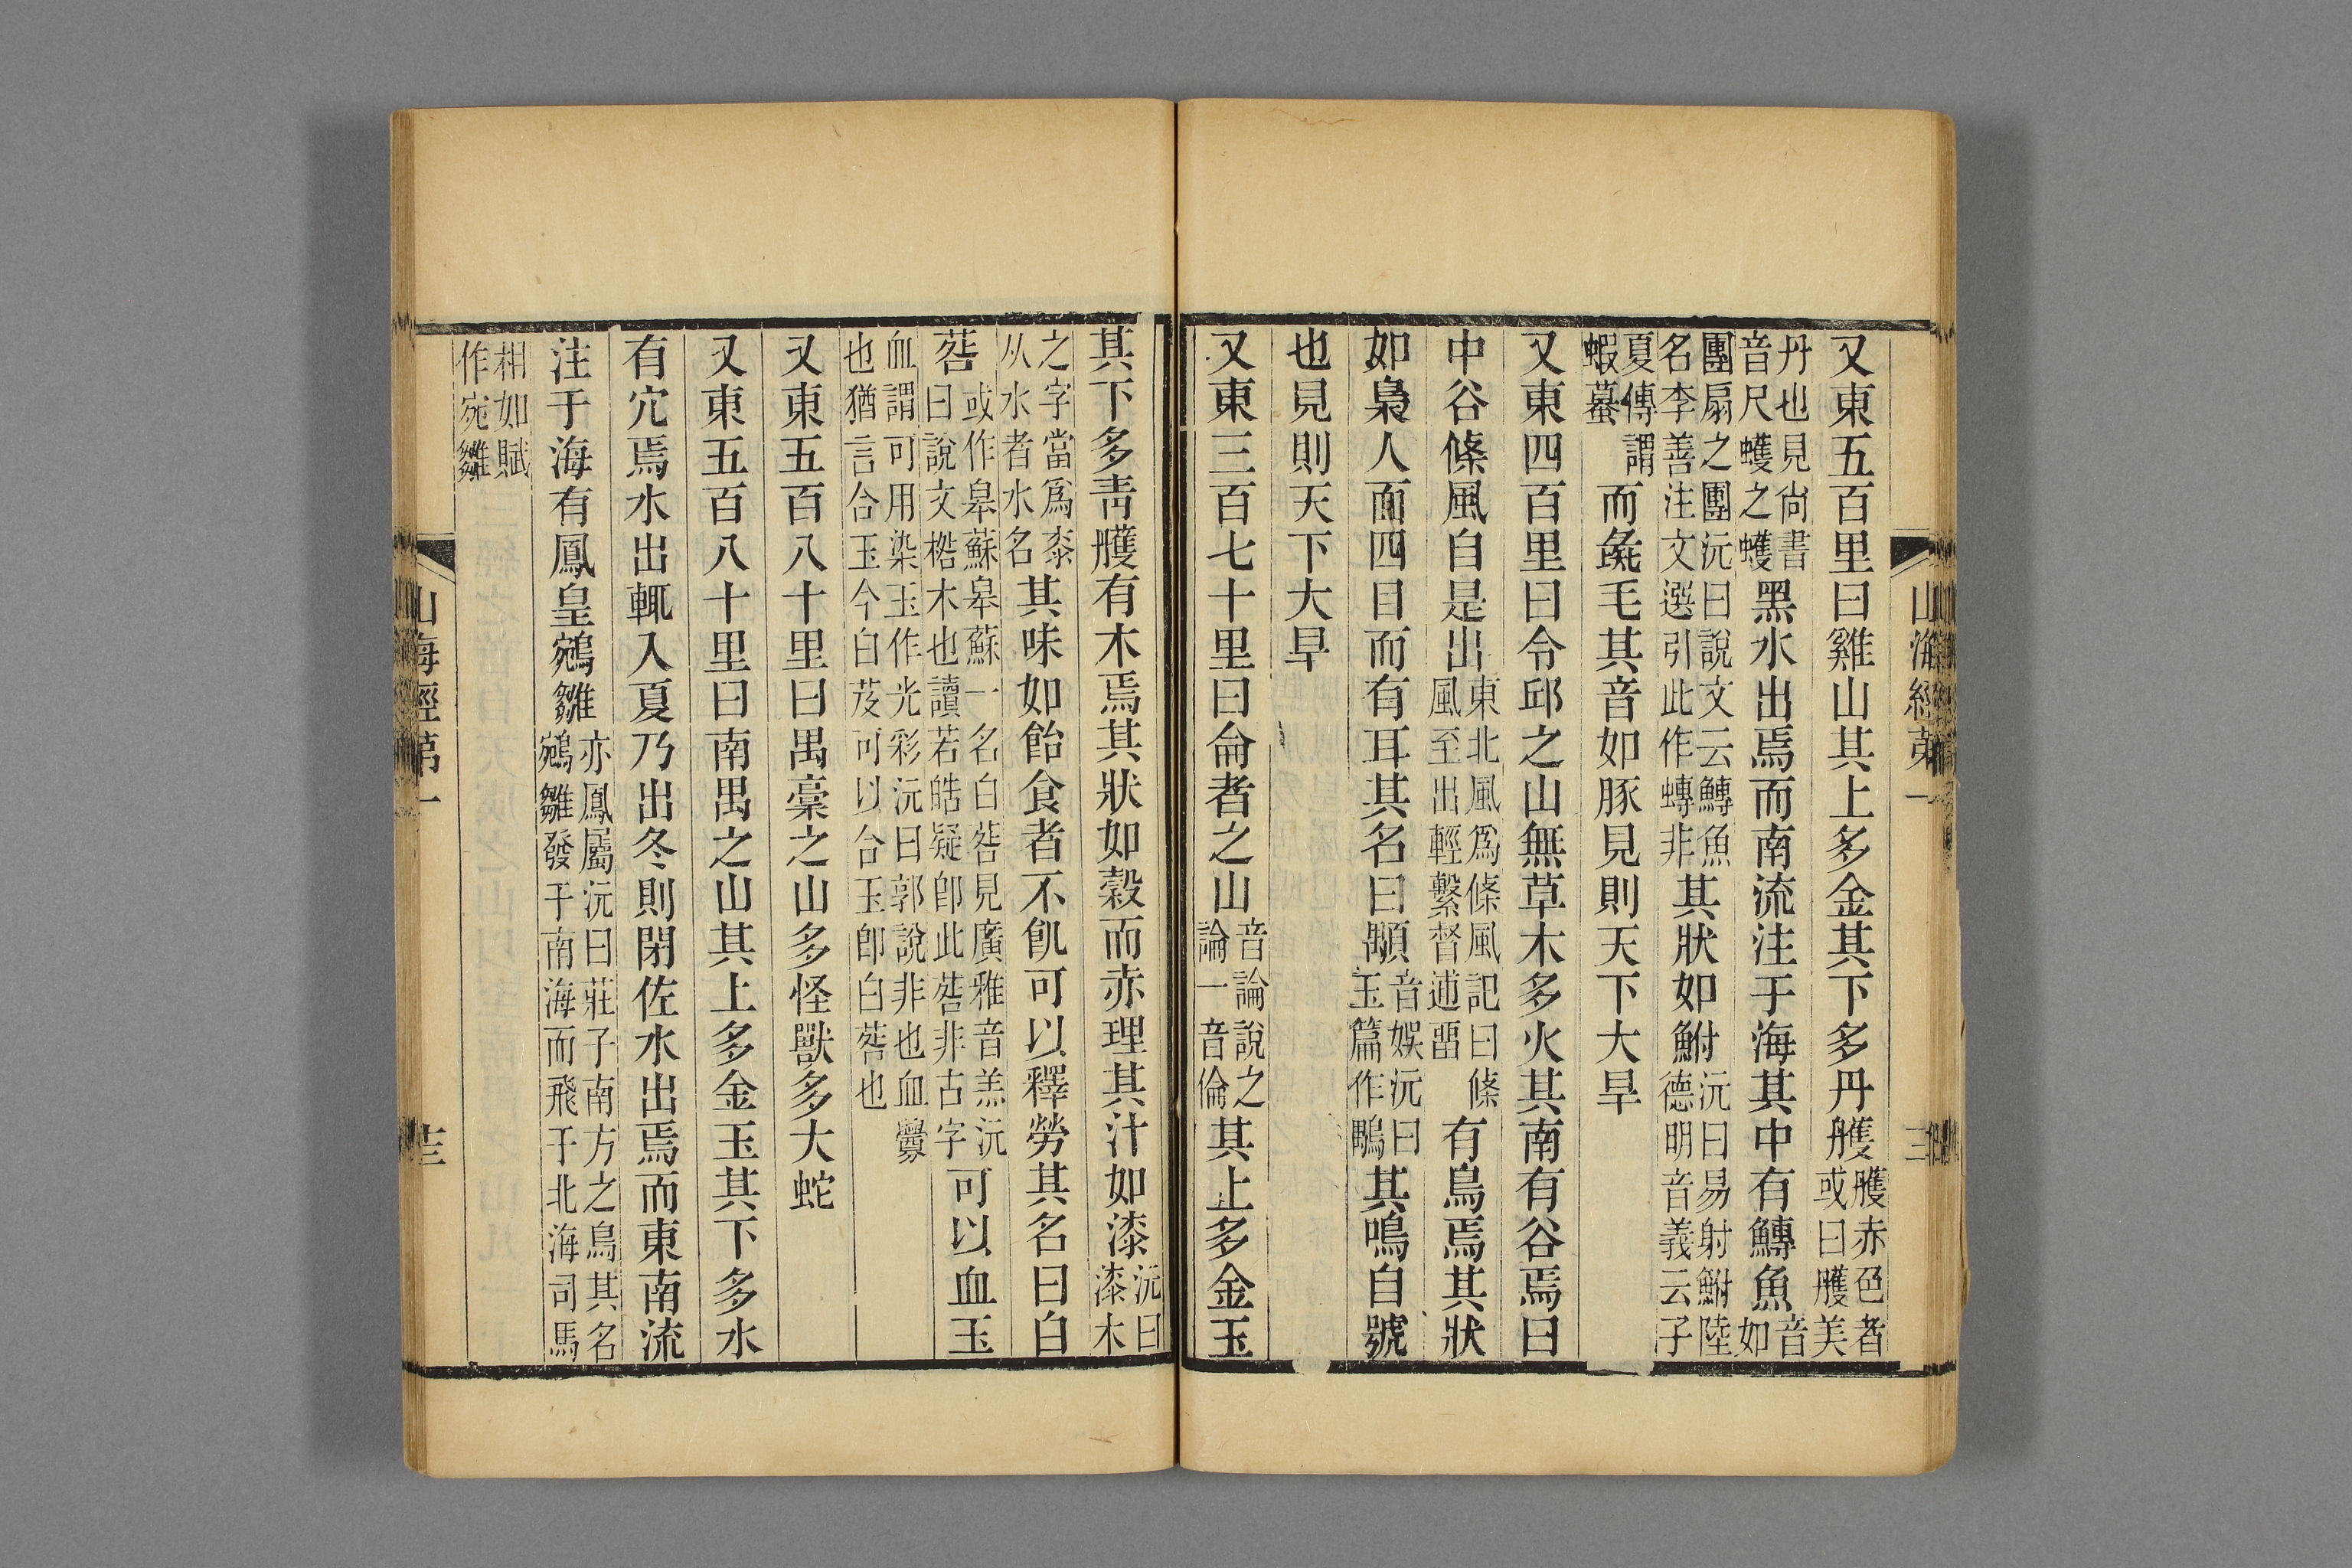 山海經第一
又東五百里曰雞山其上多金其下多丹雘雘赤色者或曰雘美
丹也見尙書音尺蠖之蠖黑水出焉而南流注于海其中有鱄魚音如
團扇之團沅曰說文云鱄魚名李善注文選引此作䗠非其狀如鮒沅曰易射鮒陸德明音義云子
夏傳謂蝦蟇而彘毛其音如豚見則天下大旱
又東四百里曰令邱之山無草木多火其南有谷焉曰
中谷條風自是出東北風爲條風記曰條風至出輕繫督逋畱有鳥焉其狀
如梟人面四目而有耳其名曰顒音娛沅曰玉篇作䳋其鳴自號
也見則天下大旱
又東三百七十里曰侖者之山音論說之論一音倫其上多金玉
其下多靑雘有木焉其狀如榖而赤理其汁如漆沅曰漆木
之字當爲桼从水者水名其味如飴食者不飢可以釋勞其名曰白
䓘或作皋蘇皋蘇一名白䓘見廣雅音羔沅曰說文楛木也讀若皓疑卽此䓘非古字可以血玉
血謂可用染玉作光彩沅曰郭說非也血釁也猶言合玉今白芨可以合玉卽白䓘也
又東五百八十里曰禺稾之山多怪獸多大蛇
又東五百八十里曰南禺之山其上多金玉其下多水
有穴焉水出輒入夏乃出冬則閉佐水出焉而東南流
注于海有鳳皇鵷雛亦鳳屬沅曰莊子南方之鳥其名鵷雛發于南海而飛于北海司馬
相如賦作宛雛
山海經第一